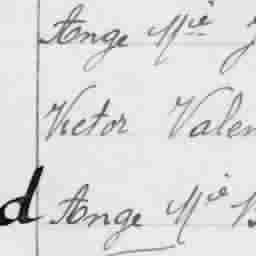 Ange Mie
Victor Valen
d Ange Mie